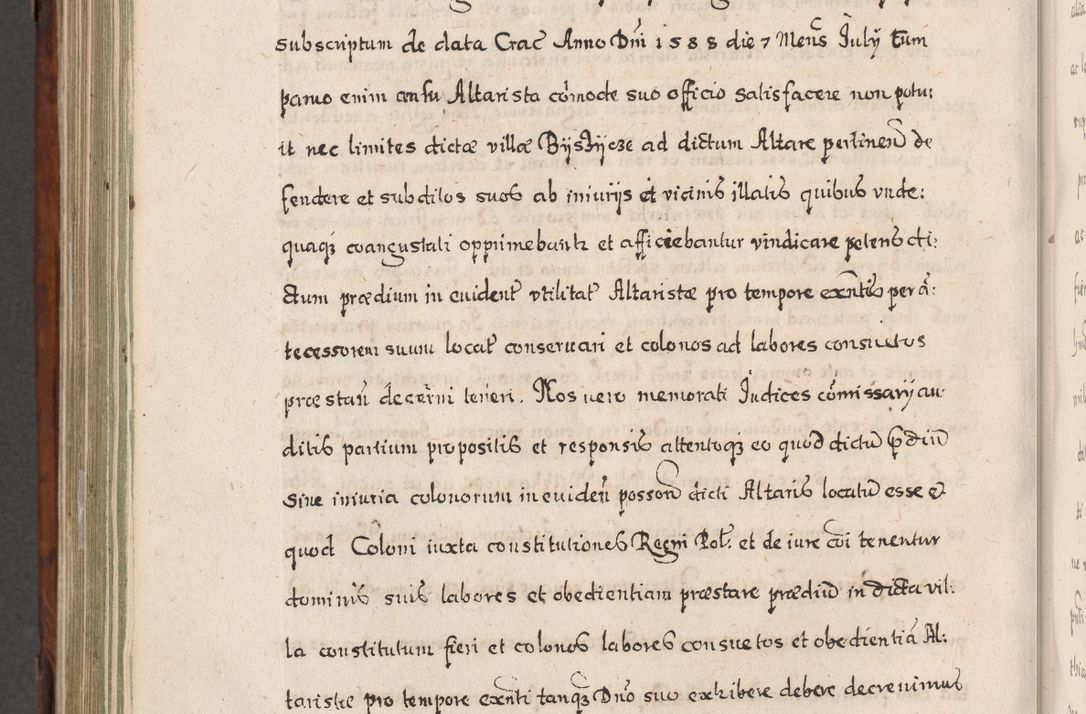 subscriptum de data Crac̃ Anno Dñi 1588 die 7 Menẽ Julÿ Cum
paruo enim censu Altarista cõmode suo officio satisfacere non potu:
it nec limites dictæ villæ Bÿstÿcze ad dictum Altare pertineñ de
fendere et subditos suos ab iniurijs et vicinis illatis quibus vnde:
quaq₃ coangustati opprimebantr et afficiebantur vindicare potens di:
ctum prædium in euident̃ vtilitat̃ Altaristæ pro tempore exñtis per ã:
tecessorem suum locat̃ conseruari et colonos ad labores consuetos
præstañ decerni teneri. Nos uero memorati Judices cõmissarÿ au
ditis partium propositis et responsis attentoq₃ eo quod dictũ p̃diũ
sine iniuria colonorum in euideñ possoñ dicti Altaris locatũ esse et
quod Coloni iuxta constitutiones Regni Pol̃. et de iure cõi tenentur
dominis suis labores et obedientiam præstare prædiũ in dicta vil:
la constitutum fieri et colonos labores consuetos et obedientiã Al:
taristæ pro tempore exñti tanq₃ Dño suo exhibere debere decreuimus